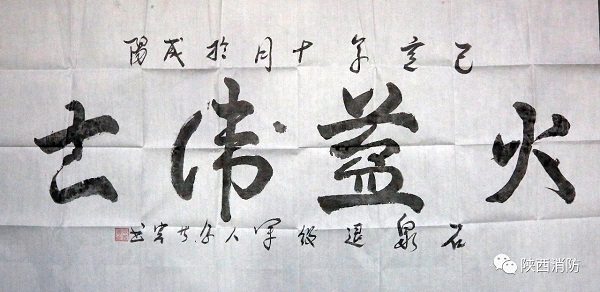 己亥年十月於咸陽
火蓝衛士
石泉退役军人书
陕西消防